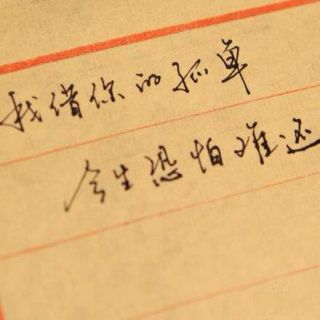 我借你的孤单
今生恐怕难还